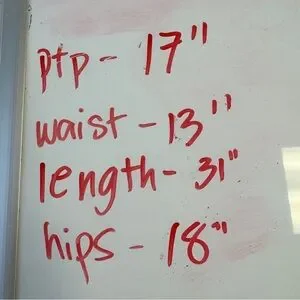 ptp - 17"
waist - 13"
length - 31"
hips - 18"